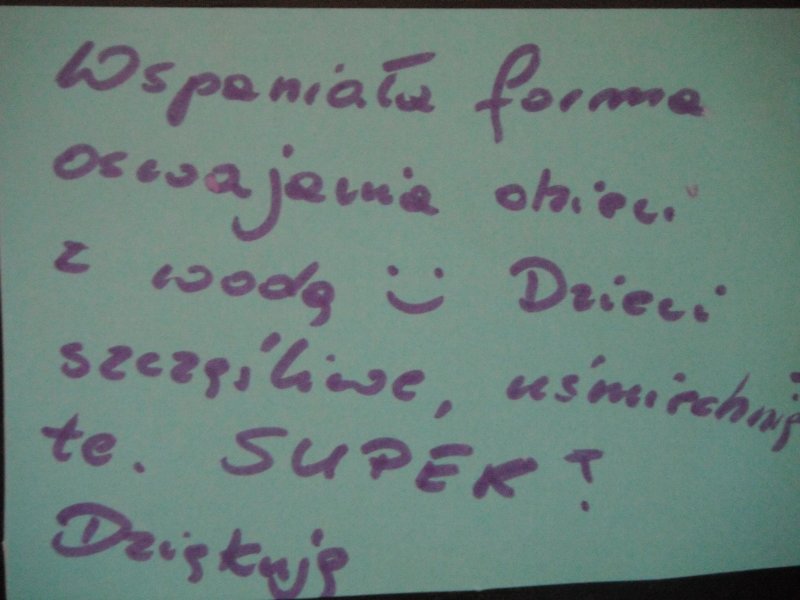 Wspaniała forma
oswajania dzieci
z wodą :) Dzieci
szczęśliwe, uśmiechnię
te. SUPER!
Dziękuję